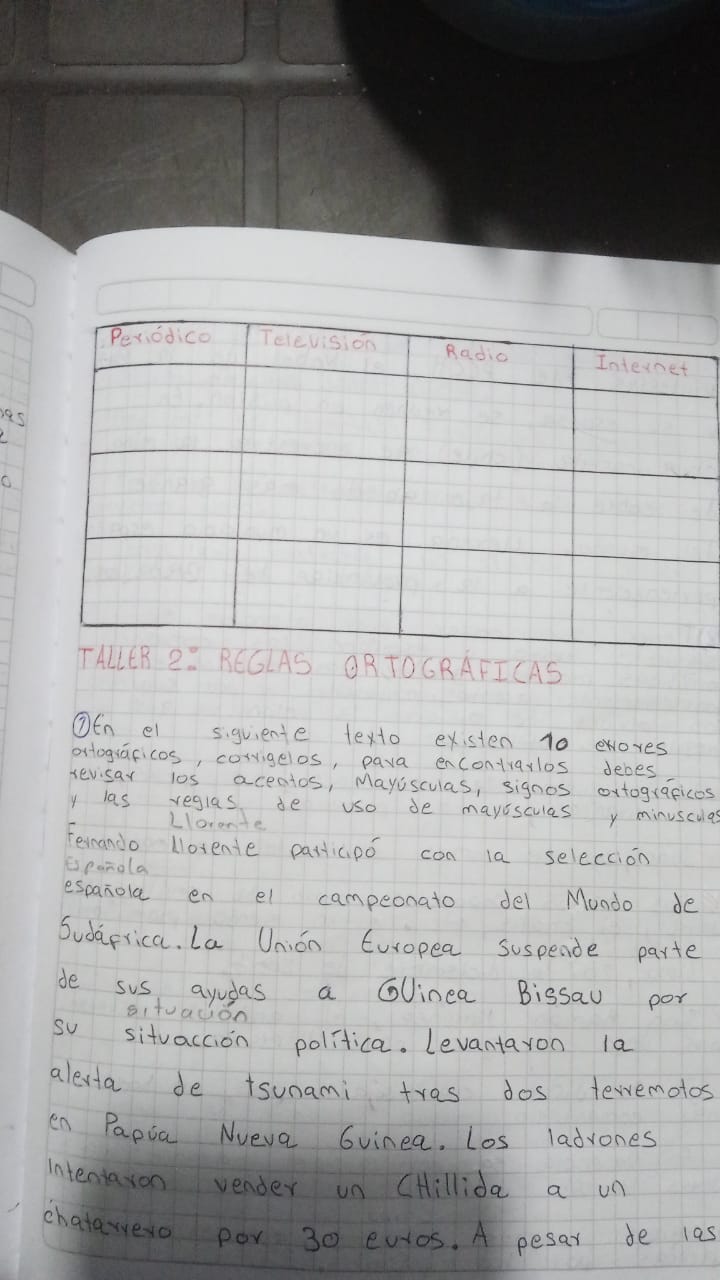 Periódico Televisión Radio Internet
TALLER 2: REGLAS ORTOGRÁFICAS
① En el siguiente texto existen 10 errores
ortográficos, corrigelos, para encontrarlos debes
revisar los acentos, Mayúsculas, signos ortográficos
y las reglas de uso de mayúsculas y minusculas
Llorente
Fernando llorente participó con la selección
Española
española en el campeonato del Mundo de
Sudáfrica. La Unión Europea suspende parte
de sus ayudas a GUinea Bissau por
situación
su situacción política. Levantaron la
alerta de tsunami tras dos terremotos
en Papúa Nueva Guinea. Los ladrones
Intentaron vender un CHillida a un
chatarrero por 30 euros. A pesar de las